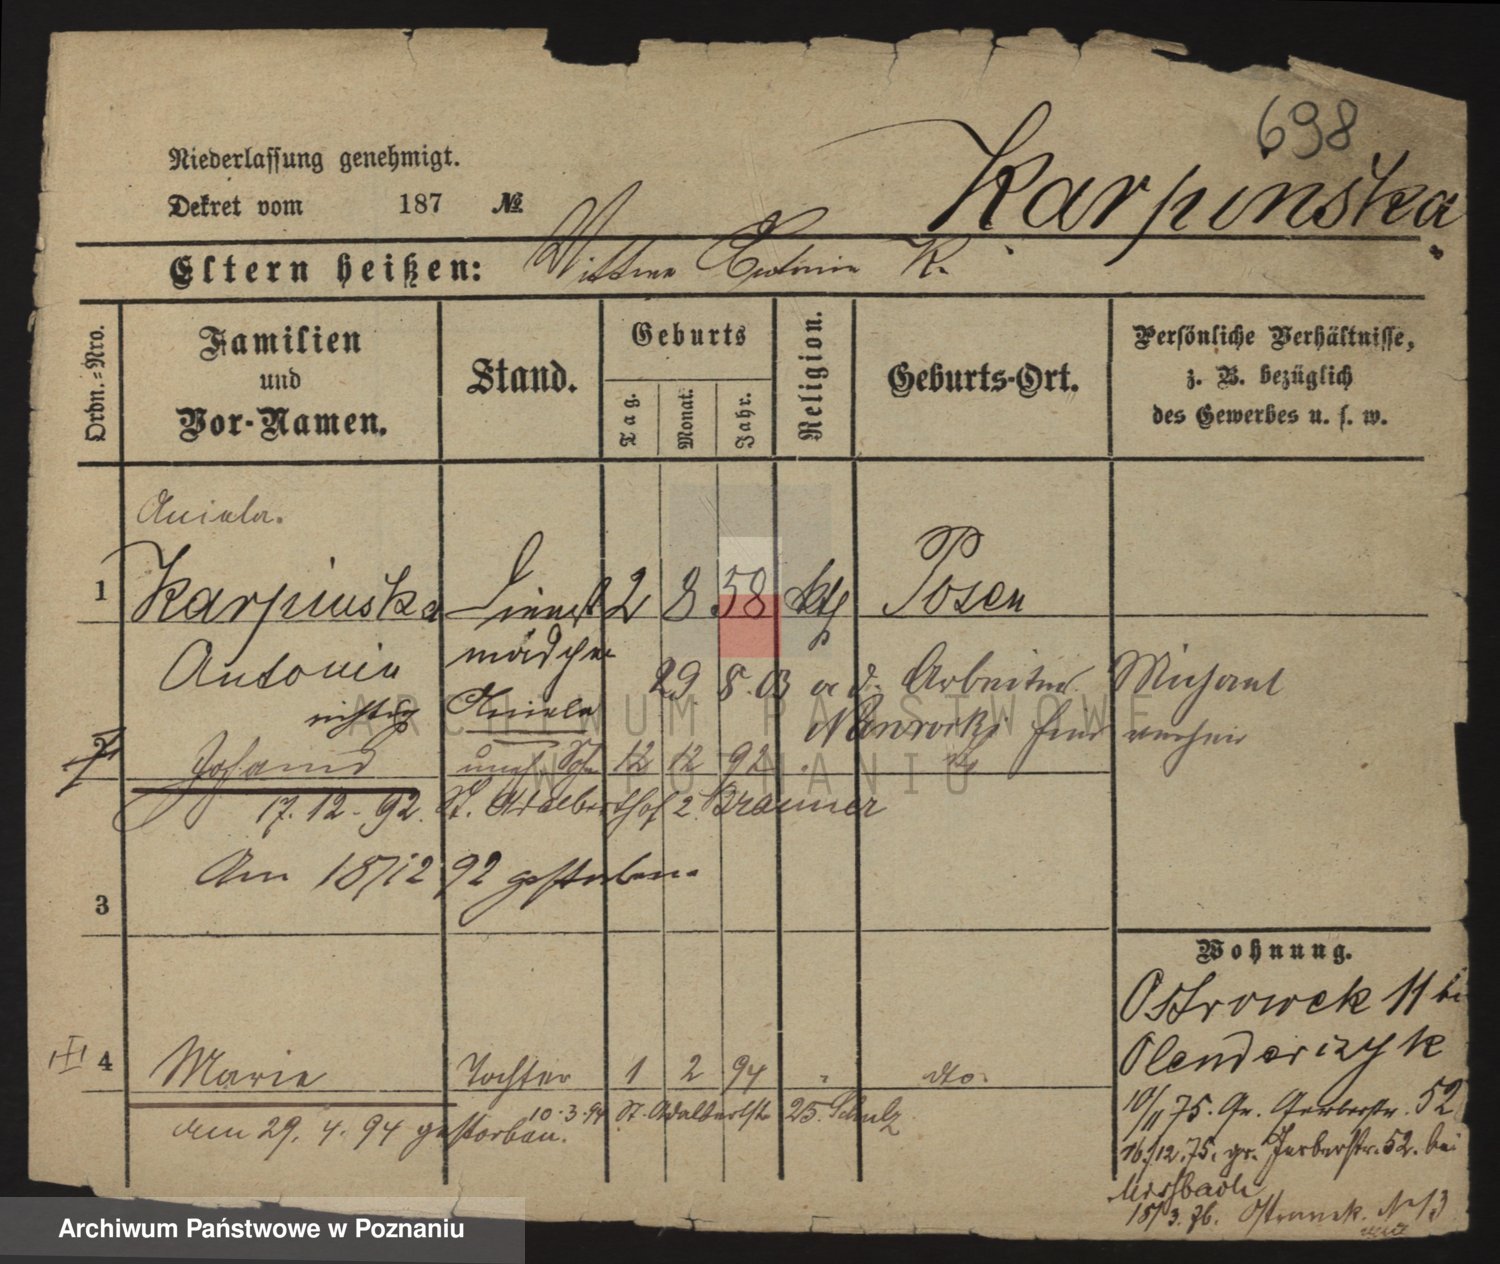 698
Karpinska
Niederlassung genehmigt.
Dekret vom 187 №
Eltern heißen: Wittwe Antonie K.
Ordn.-Nro.
Familien und Vor-Namen.
Stand.
Geburts
Tag. Monat. Jahr.
Religion.
Geburts-Ort.
Persönliche Verhältnisse,
z. B. bezüglich
des Gewerbes u. s. w.
Aniela.
1 Karpinska Dienst 2 8 58 kth Posen
Antonie mädchen
29 8. 03 a d. Arbeiter Michael
richtig Aniela Nawrocki
2 Johann unehl Sohn 12 12 92
17. 12. 92. St. Adalberthof 2 Brauner
Am 18/12 92 gestorben.
3
Wohnung.
Ostrowek 11 bei
Olenderczyk
10/11 75. Gr. Gerberstr. 52
16/12. 75. gr. Gerberstr. 52. bei
18/3. 76. Ostrowek. No 13
4 Marie Tochter 1 2 94 " dto.
10.3.94 St. Adalbertstr 25. Schulz
am 29. 4. 94 gestorben.
ARCHIWUM PAŃSTWOWE
W POZNANIU
Archiwum Państwowe w Poznaniu